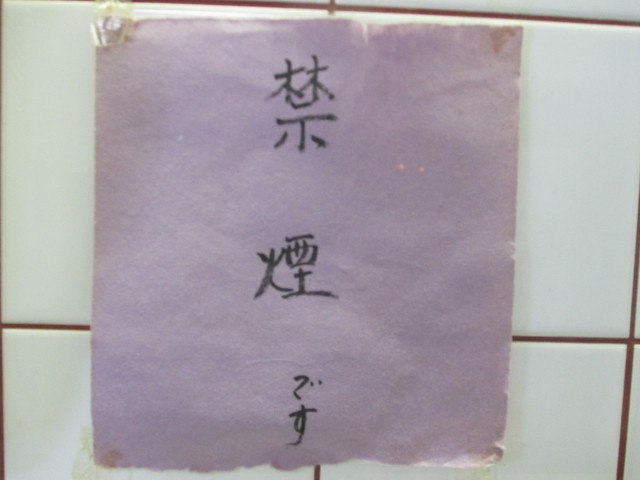 禁煙です